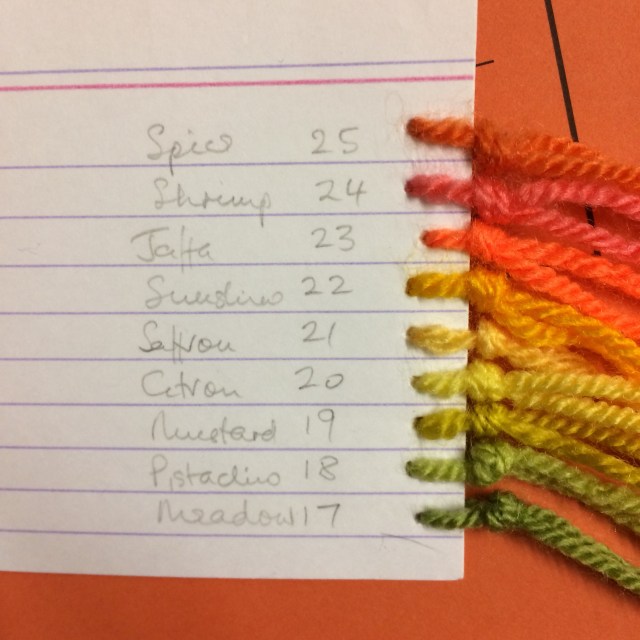 Spice 25
Shrimp 24
Jaffa 23
Sunshine 22
Saffron 21
Citron 20
Mustard 19
Pistachio 18
Meadow 17